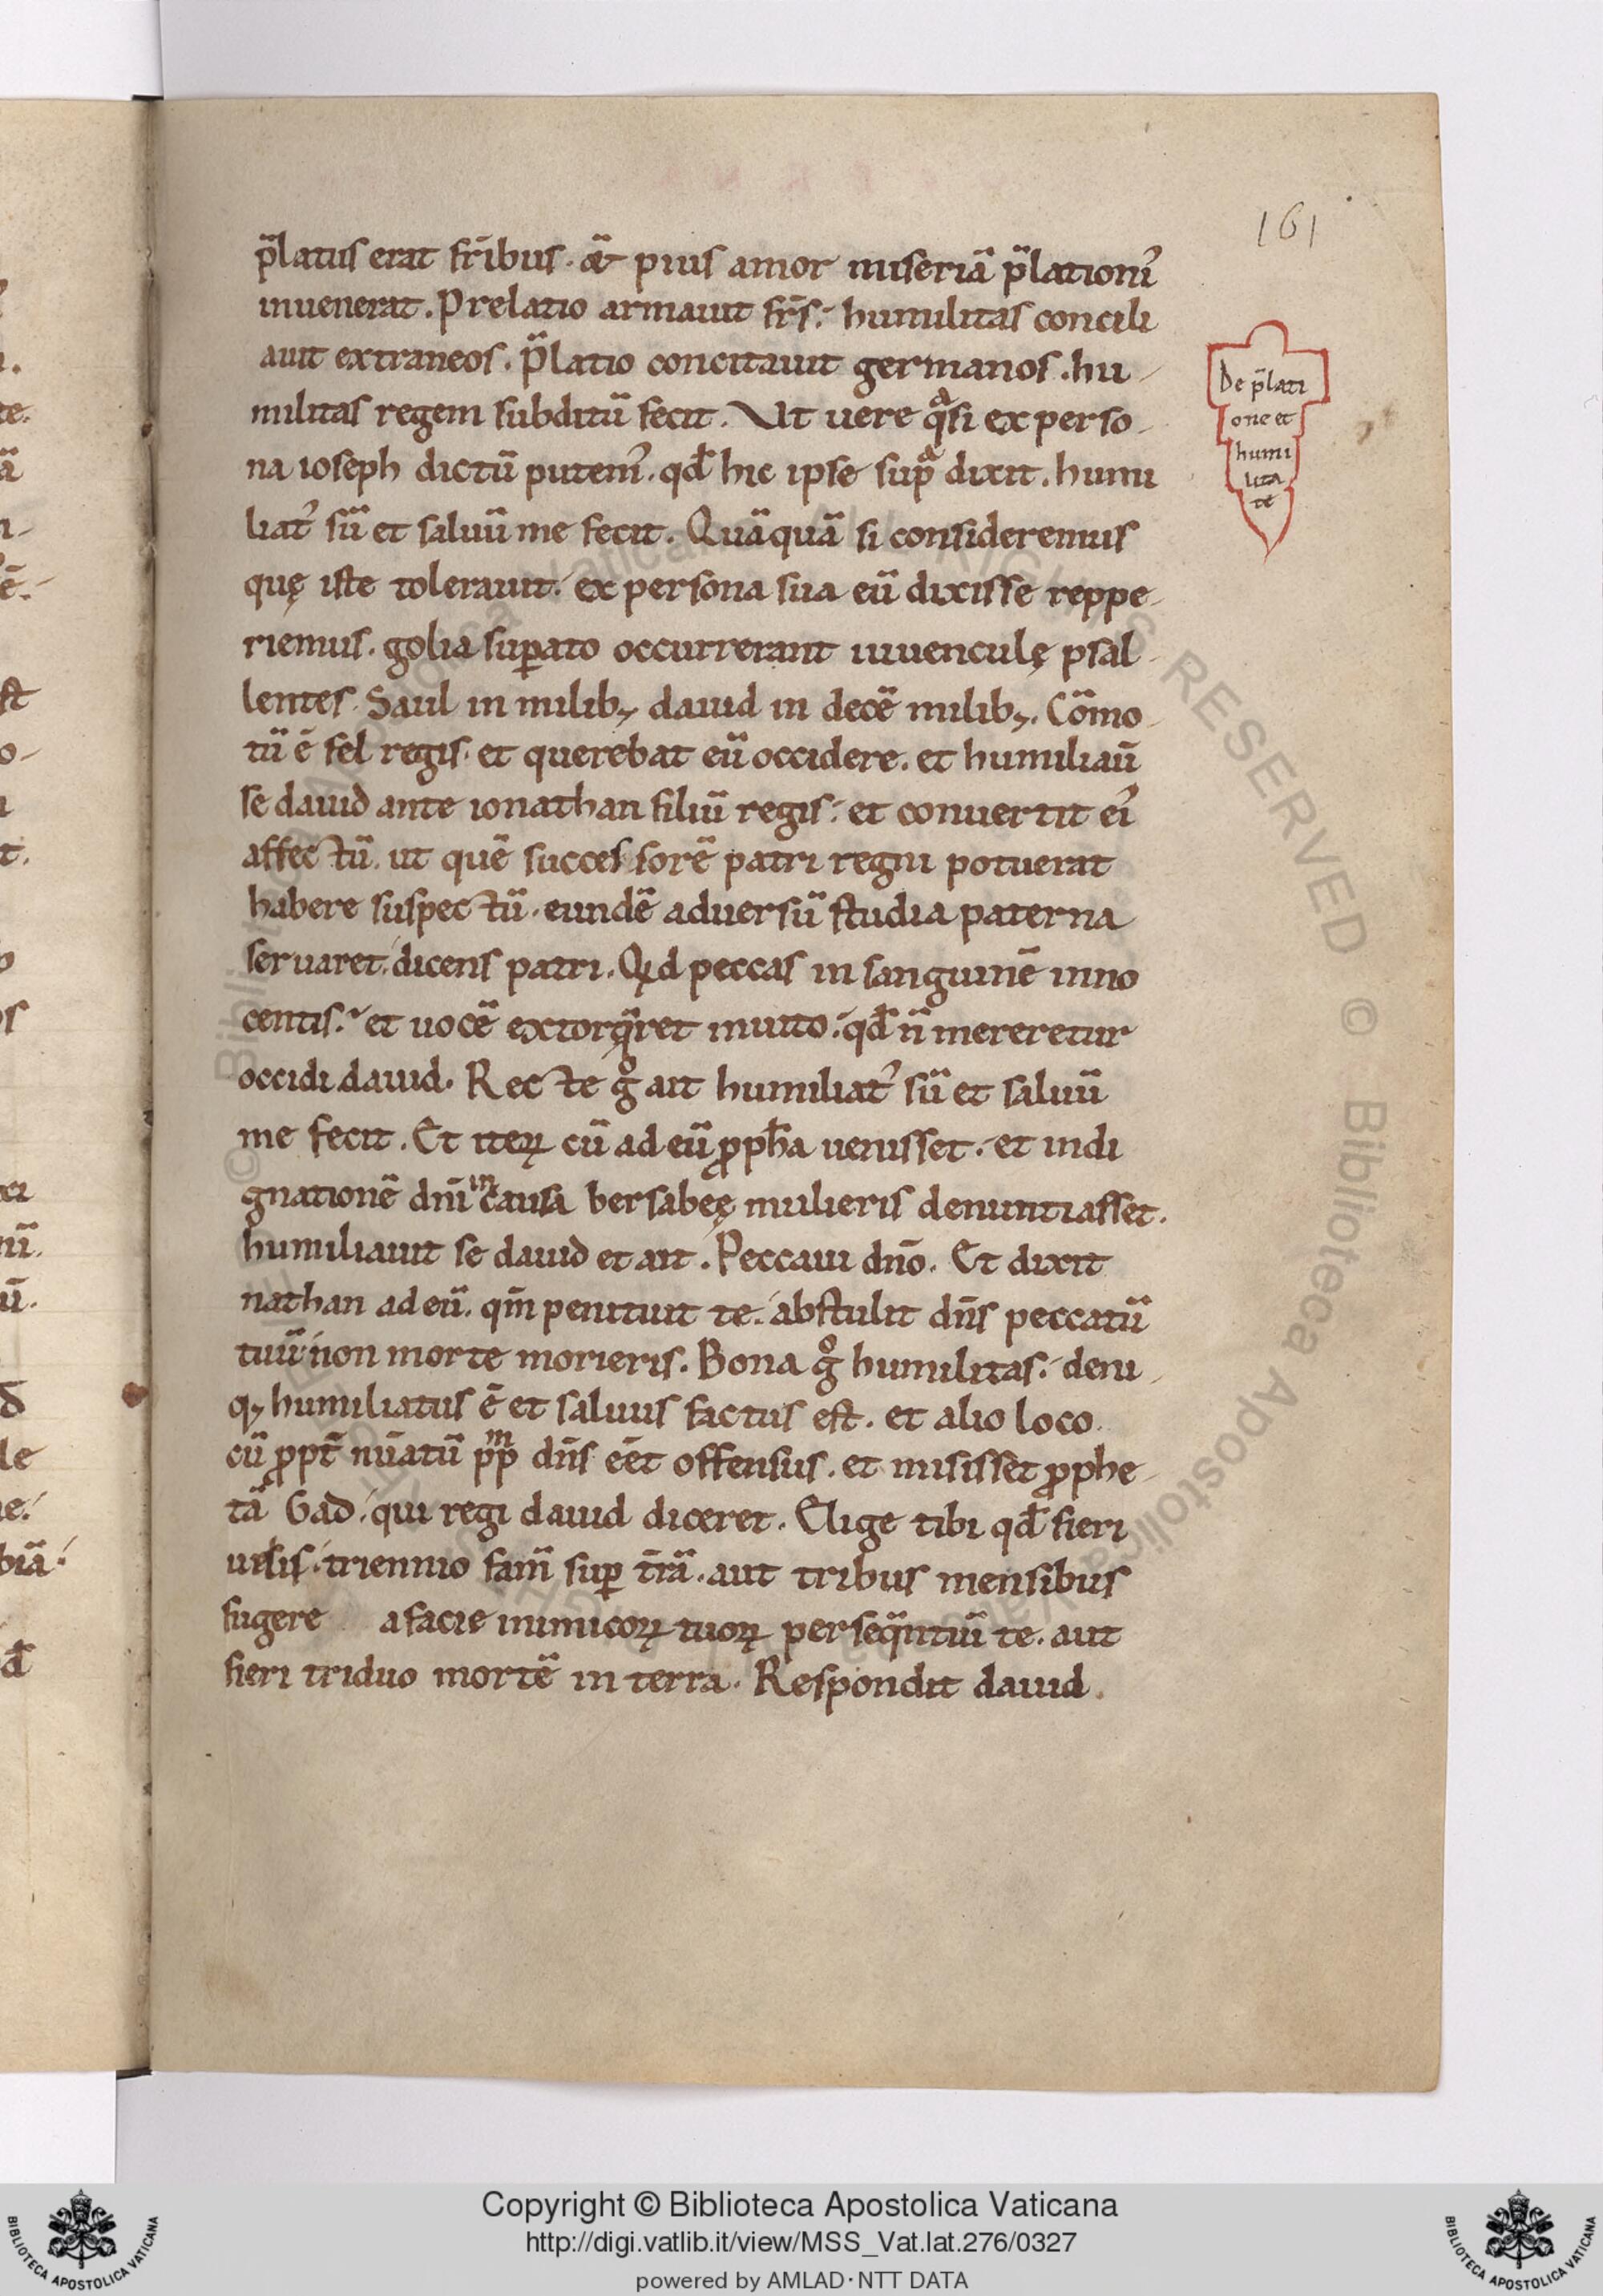 161
p̄latus erat fr̄ibus. & pius amor miseriā p̄lationi᷒
inuenerat. Prelatio armauit fr̄s. humilitas concili
auit extraneos. p̄latio concitauit germanos. hu-
militas regem subditū fecit. Ut uere qͣsi ex perso-
na ioseph dictū putem᷒. qd̄ hic ipse supͣ dixit. humi
liat᷒ sū et saluū me fecit. Quāquā si consideremus
quę iste tolerauit. ex persona sua eū dixisse reppe-
riemus. golia suꝑato occurrerant iuuenculę psal-
lentes. Saul in milibꝫ dauid in decē milibꝫ. Cōmo-
tū ē fel regis. et querebat eū occidere. et humiliau̅
se dauid ante ionathan filiū regis. et conuertit ei᷒
affectū. ut quē successorē patri regni potuerat
habere suspectū. eundē aduersū studia paterna
seruaret. dicens patri. Qd peccas in sanguinē inno
centis. et uocē extorq̄ret inuito. qd̄ n̄ mereretur
occidi dauid. Recte gͦ ait humiliat᷒ sū et saluū
me fecit. Et iteꝝ cū ad eū ꝓph̄a uenisset. et indi
gnationē dn̄i in causa bersabeę mulieris denuntiasset.
humiliauit se dauid et ait. Peccaui dn̄o. Et dixit
nathan ad eū. qm̄ penituit te. abstulit dn̄s peccatū
tuū non morte morieris. Bona gͦ humilitas. deni-
qꝫ humiliatus ē et saluus factus est. et alio loco
cū ꝓpt̄ nūatū pp̄m dn̄s eēt offensus. et misisset ꝓphe-
tā Gad. qui regi dauid diceret. Elige tibi qd̄ fieri
uelis. triennio fam̄ suꝑ t̄rā. aut tribus mensibus
fugere a facie inimicoꝝ tuoꝝ perseq̄ntiū te. aut
fieri triduo mortē in terra. Respondit dauid.
De p̄lati
one et
humi
lita
te
Copyright © Biblioteca Apostolica Vaticana
http://digi.vatlib.it/view/MSS_Vat.lat.276/0327
powered by AMLAD·NTT DATA